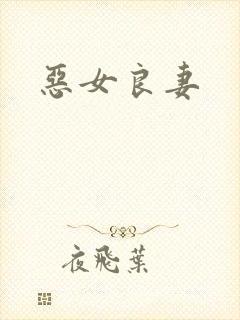 惡女良妻
夜飛葉